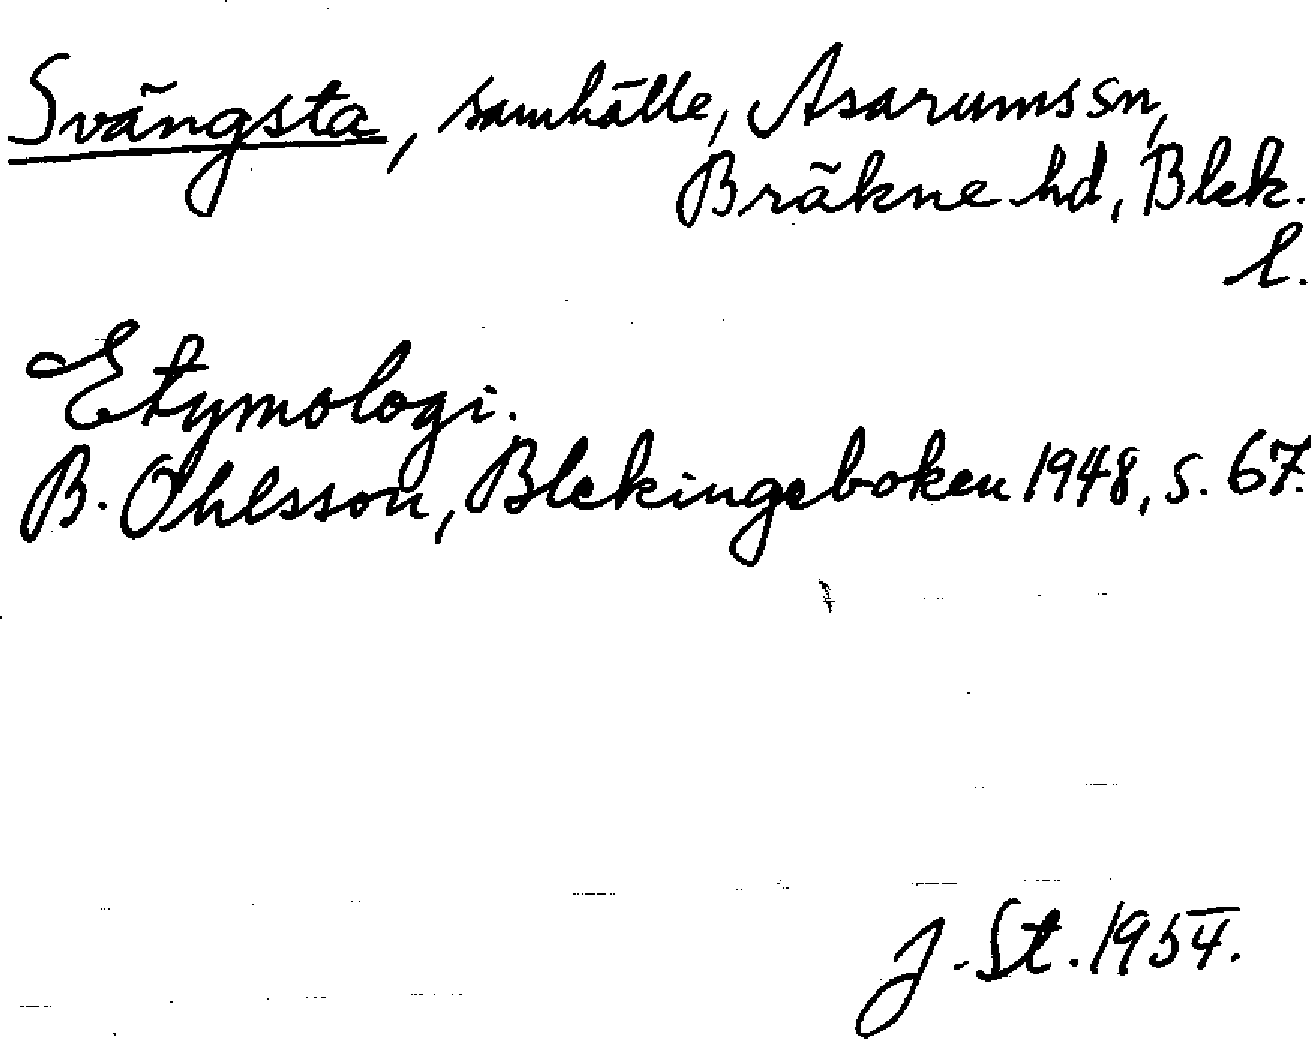 Svängsta, samhälle, Asarums sn,
Bräkne hd, Blek.
l.
Etymologi.
B. Ohlsson, Blekingeboken 1948, s. 67.
J. St. 1954.